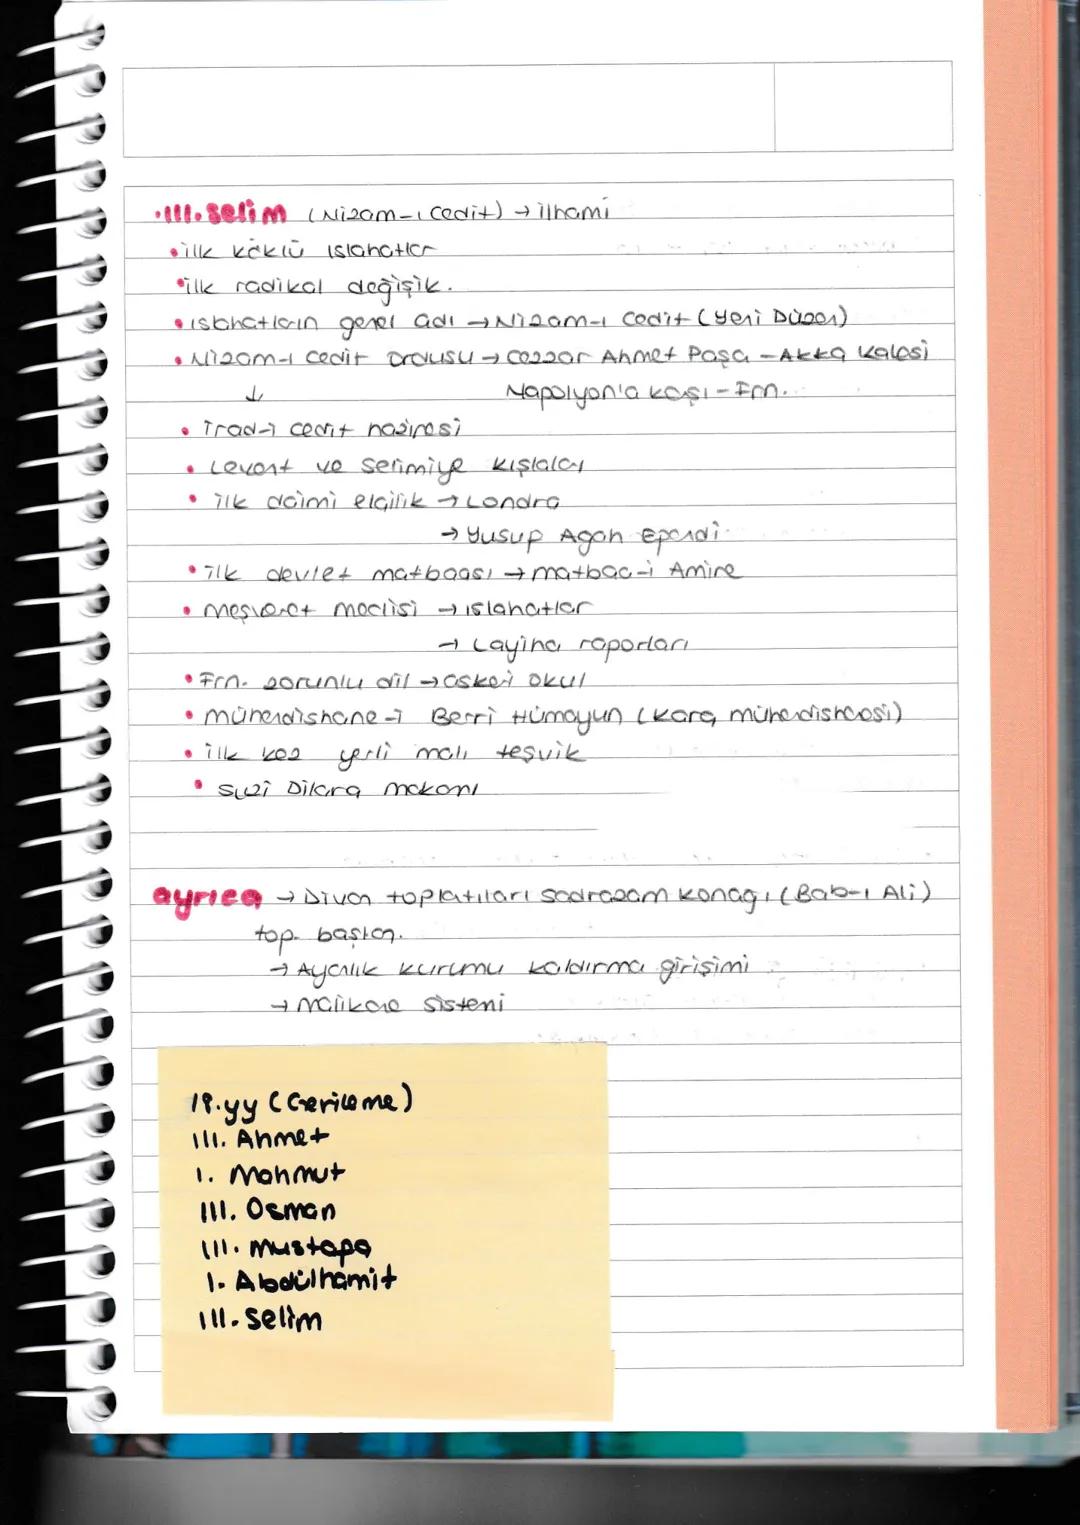 •III. Selim (Nizam-ı Cedit) → ilhami
• ilk köklü ıslahatlar
• ilk radikal değişik.
• ıslahatların genel adı → Nizam-ı Cedit (Yeni Düzen)
• Nizam-ı Cedit Ordusu → Cezzar Ahmet Paşa - Akka Kalesi
↓ Napolyon'a karşı - Frn.
• İrad-ı Cedit hazinesi
• Levent ve Selimiye Kışlaları
• ilk daimi elçilik → Londra
→ Yusuf Agah Efendi
• ilk devlet matbaası → matbaa-i Amire
• Meşveret meclisi → ıslahatlar
→ Layiha raporları
• Frn. zorunlu dil → askeri okul
• mühendishane-i Berri Hümayun (Kara mühendishanesi)
• ilk kez yerli malı teşvik
• Suzi Dilara makamı
ayrıca → Divan toplatıları sadrazam konağı (Bab-ı Ali)
top. başlan.
→ Ayanlık kurumu kaldırma girişimi
→ Malikane sistemi
18.yy (Gerileme)
III. Ahmet
I. Mahmut
III. Osman
III. Mustafa
I. Abdülhamit
III. Selim